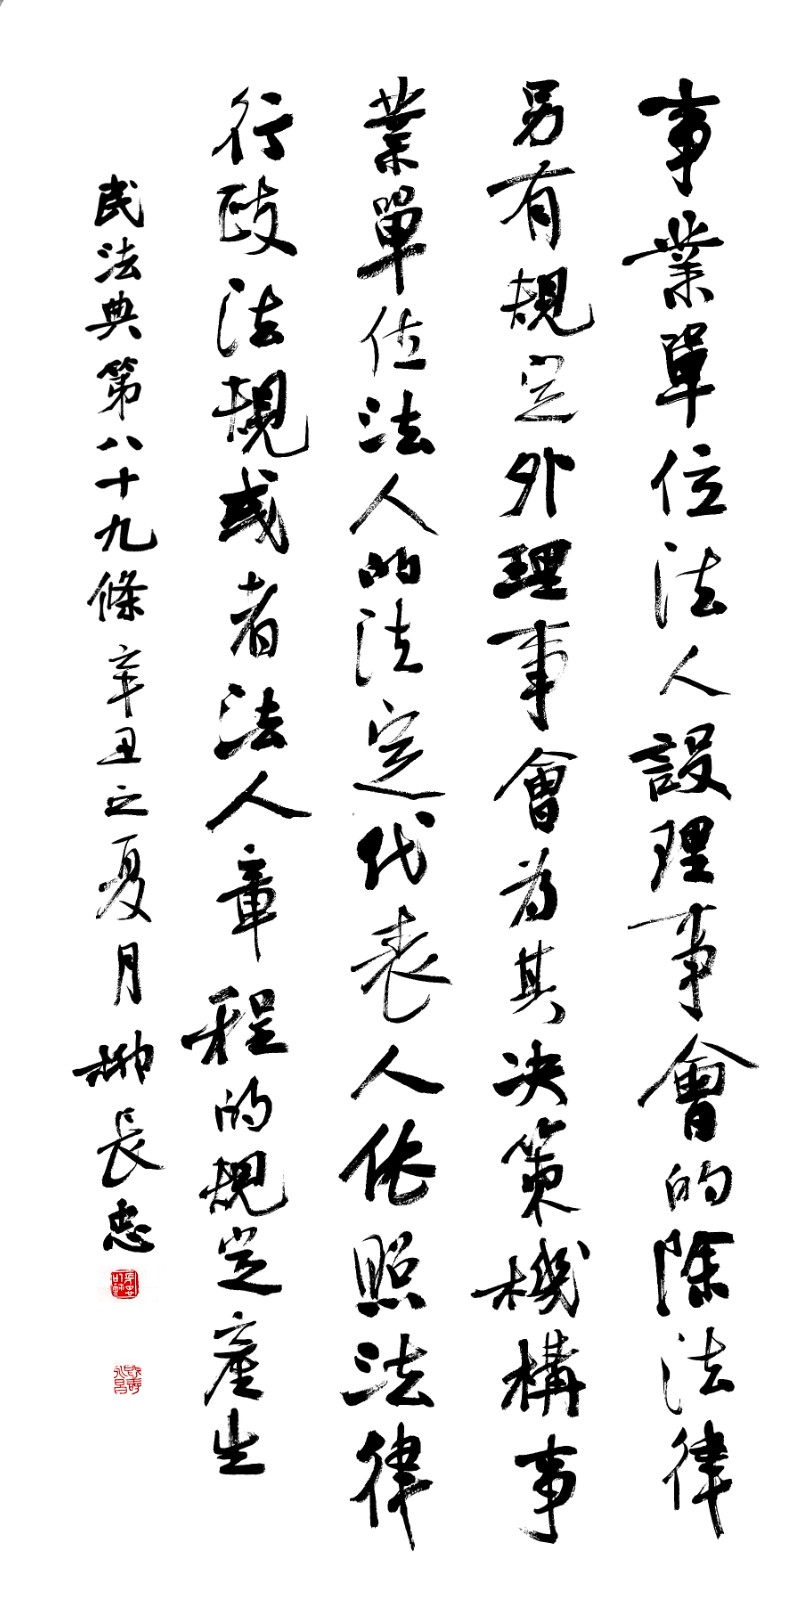 事業單位法人設理事會的除法律
另有規定外理事會为其决策機構事
業單位法人的法定代表人依照法律
行政法規或者法人章程的規定產生
民法典第八十九條辛丑之夏月柳長忠